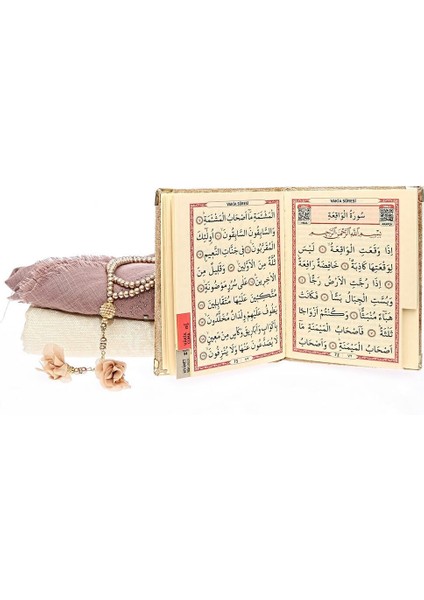 VAKIA SÛRESİ
سُورَةُ الْوَاقِعَةِ
بِسْمِ اللّٰهِ الرَّحْمٰنِ الرَّحِيمِ
اِذَا وَقَعَتِ الْوَاقِعَةُ لَيْسَ
لِوَقْعَتِهَا كَاذِبَةٌ خَافِضَةٌ رَافِعَةٌ
اِذَا رُجَّتِ الْاَرْضُ رَجًّا
وَبُسَّتِ الْجِبَالُ بَسًّا فَكَانَتْ
هَبَاءً مُنْبَثًّا وَكُنْتُمْ اَزْوَاجًا
ثَلٰثَةً فَاَصْحَابُ الْمَيْمَنَةِ مَا
اَصْحَابُ الْمَيْمَنَةِ وَاَصْحَابُ
VAKIA SÛRESİ
الْمَشْـَٔمَةِ مَا اَصْحَابُ الْمَشْـَٔمَةِ
وَالسَّابِقُونَ السَّابِقُونَ اُولٰئِكَ
الْمُقَرَّبُونَ فِي جَنَّاتِ النَّعِيمِ
ثُلَّةٌ مِنَ الْاَوَّلِينَ وَقَلِيلٌ مِنَ
الْاٰخِرِينَ عَلٰى سُرُرٍ مَوْضُونَةٍ
مُتَّكِـِٔينَ عَلَيْهَا مُتَقَابِلِينَ
يَطُوفُ عَلَيْهِمْ وِلْدَانٌ مُخَلَّدُونَ
بِاَكْوَابٍ وَاَبَارِيقَ وَكَأْسٍ مِنْ مَعِينٍ
لَا يُصَدَّعُونَ عَنْهَا وَلَا يُنْزِفُونَ